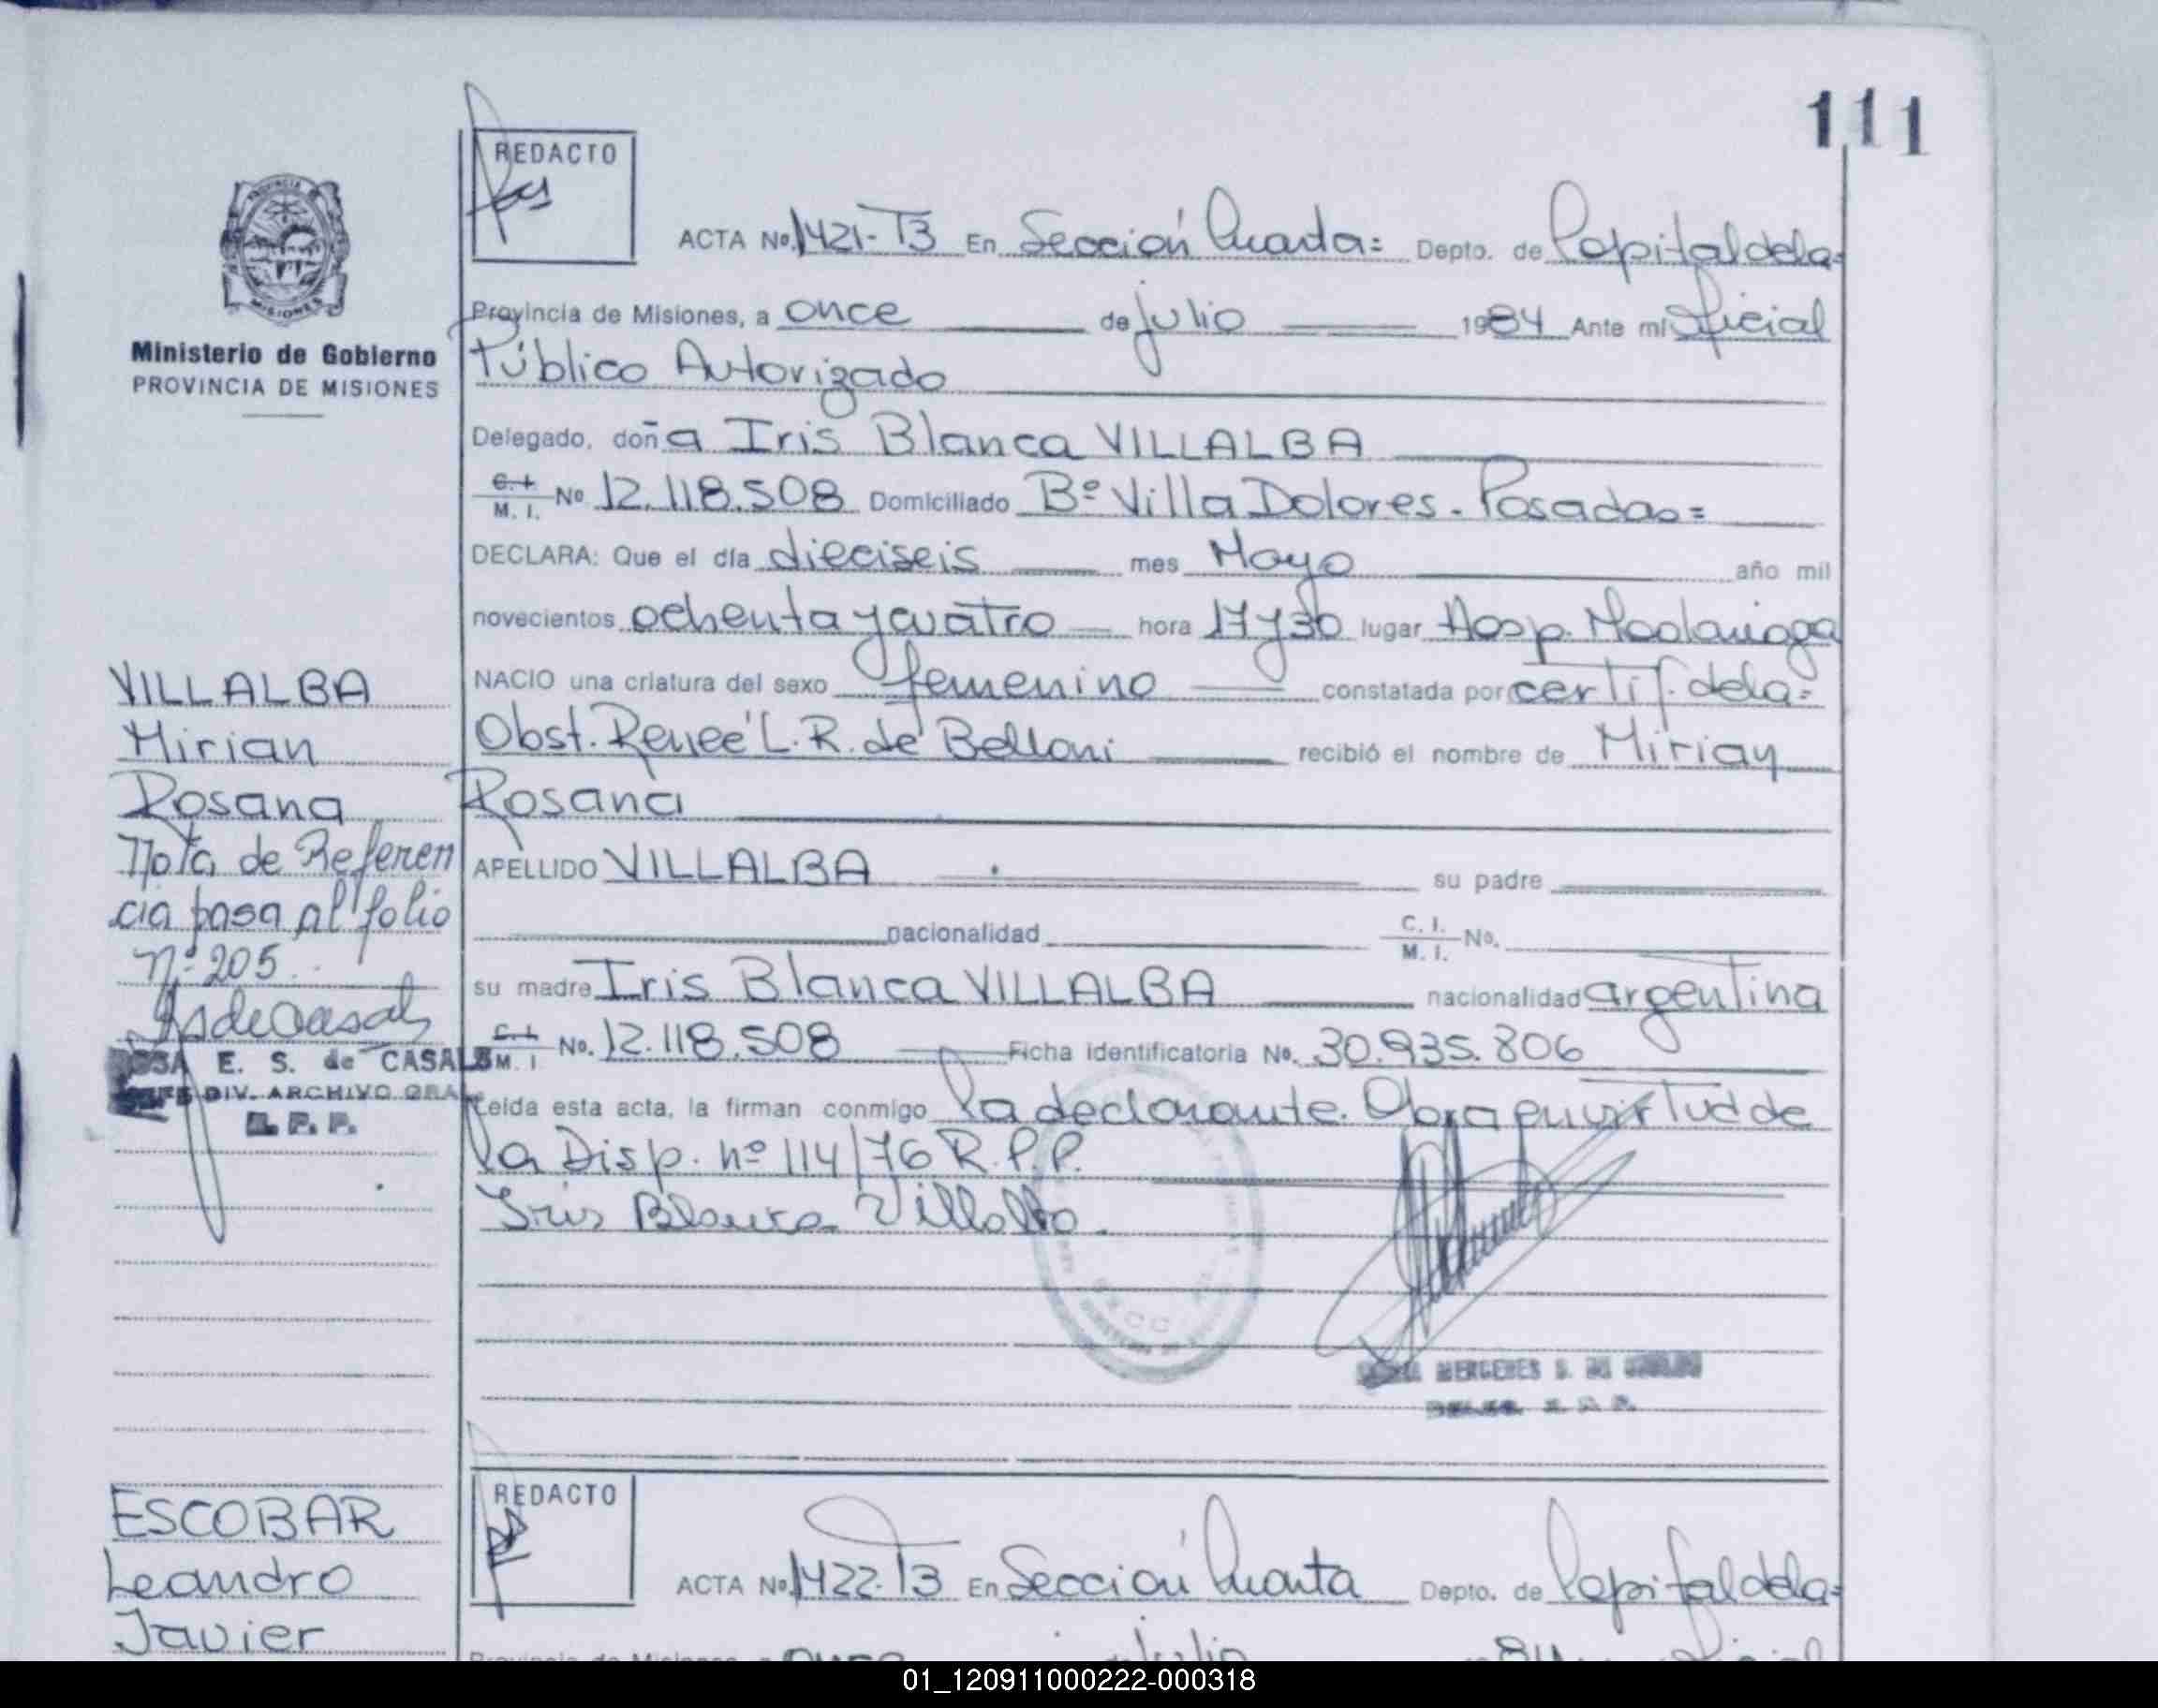 111
REDACTO
ACTA No. 1421-T3 En Sección Cuarta= Depto. de Capital dela=
Provincia de Misiones, a once de julio 1984 Ante mí Oficial
Público Autorizado
Ministerio de Gobierno
PROVINCIA DE MISIONES
Delegado, doña Iris Blanca VILLALBA
C. I. M. I. No 12.118.508 Domiciliado Bº Villa Dolores. Posadas=
DECLARA: Que el día dieciseis mes Mayo año mil
novecientos ochenta y cuatro hora 17 y 30 lugar Hosp. Madariaga
NACIO una criatura del sexo femenino constatada por certif. dela=
Obst. Renee L. R. de Belloni recibió el nombre de Mirian
Rosana
APELLIDO VILLALBA su padre
nacionalidad C. I. M. I. No.
su madre Iris Blanca VILLALBA nacionalidad argentina
C. I. M. I. No. 12.118.508 Ficha identificatoria No. 30.935.806
Leída esta acta, la firman conmigo la declarante. Obra en virtud de
la Disp. nº 114/76 R.P.P.
Iris Blanca Villalba
MERCEDES S. DE
VILLALBA
Mirian
Rosana
Nota de Referen
cia pasa al folio
nº 205
E. S. de CASALS
DIV. ARCHIVO GRAL
R. P. P.
ESCOBAR
Leandro
Javier
REDACTO
ACTA No. 1422-T3 En Sección Cuarta Depto. de Capital dela=
Provincia de Misiones, a once de julio 1984 Oficial
01_120911000222-000318